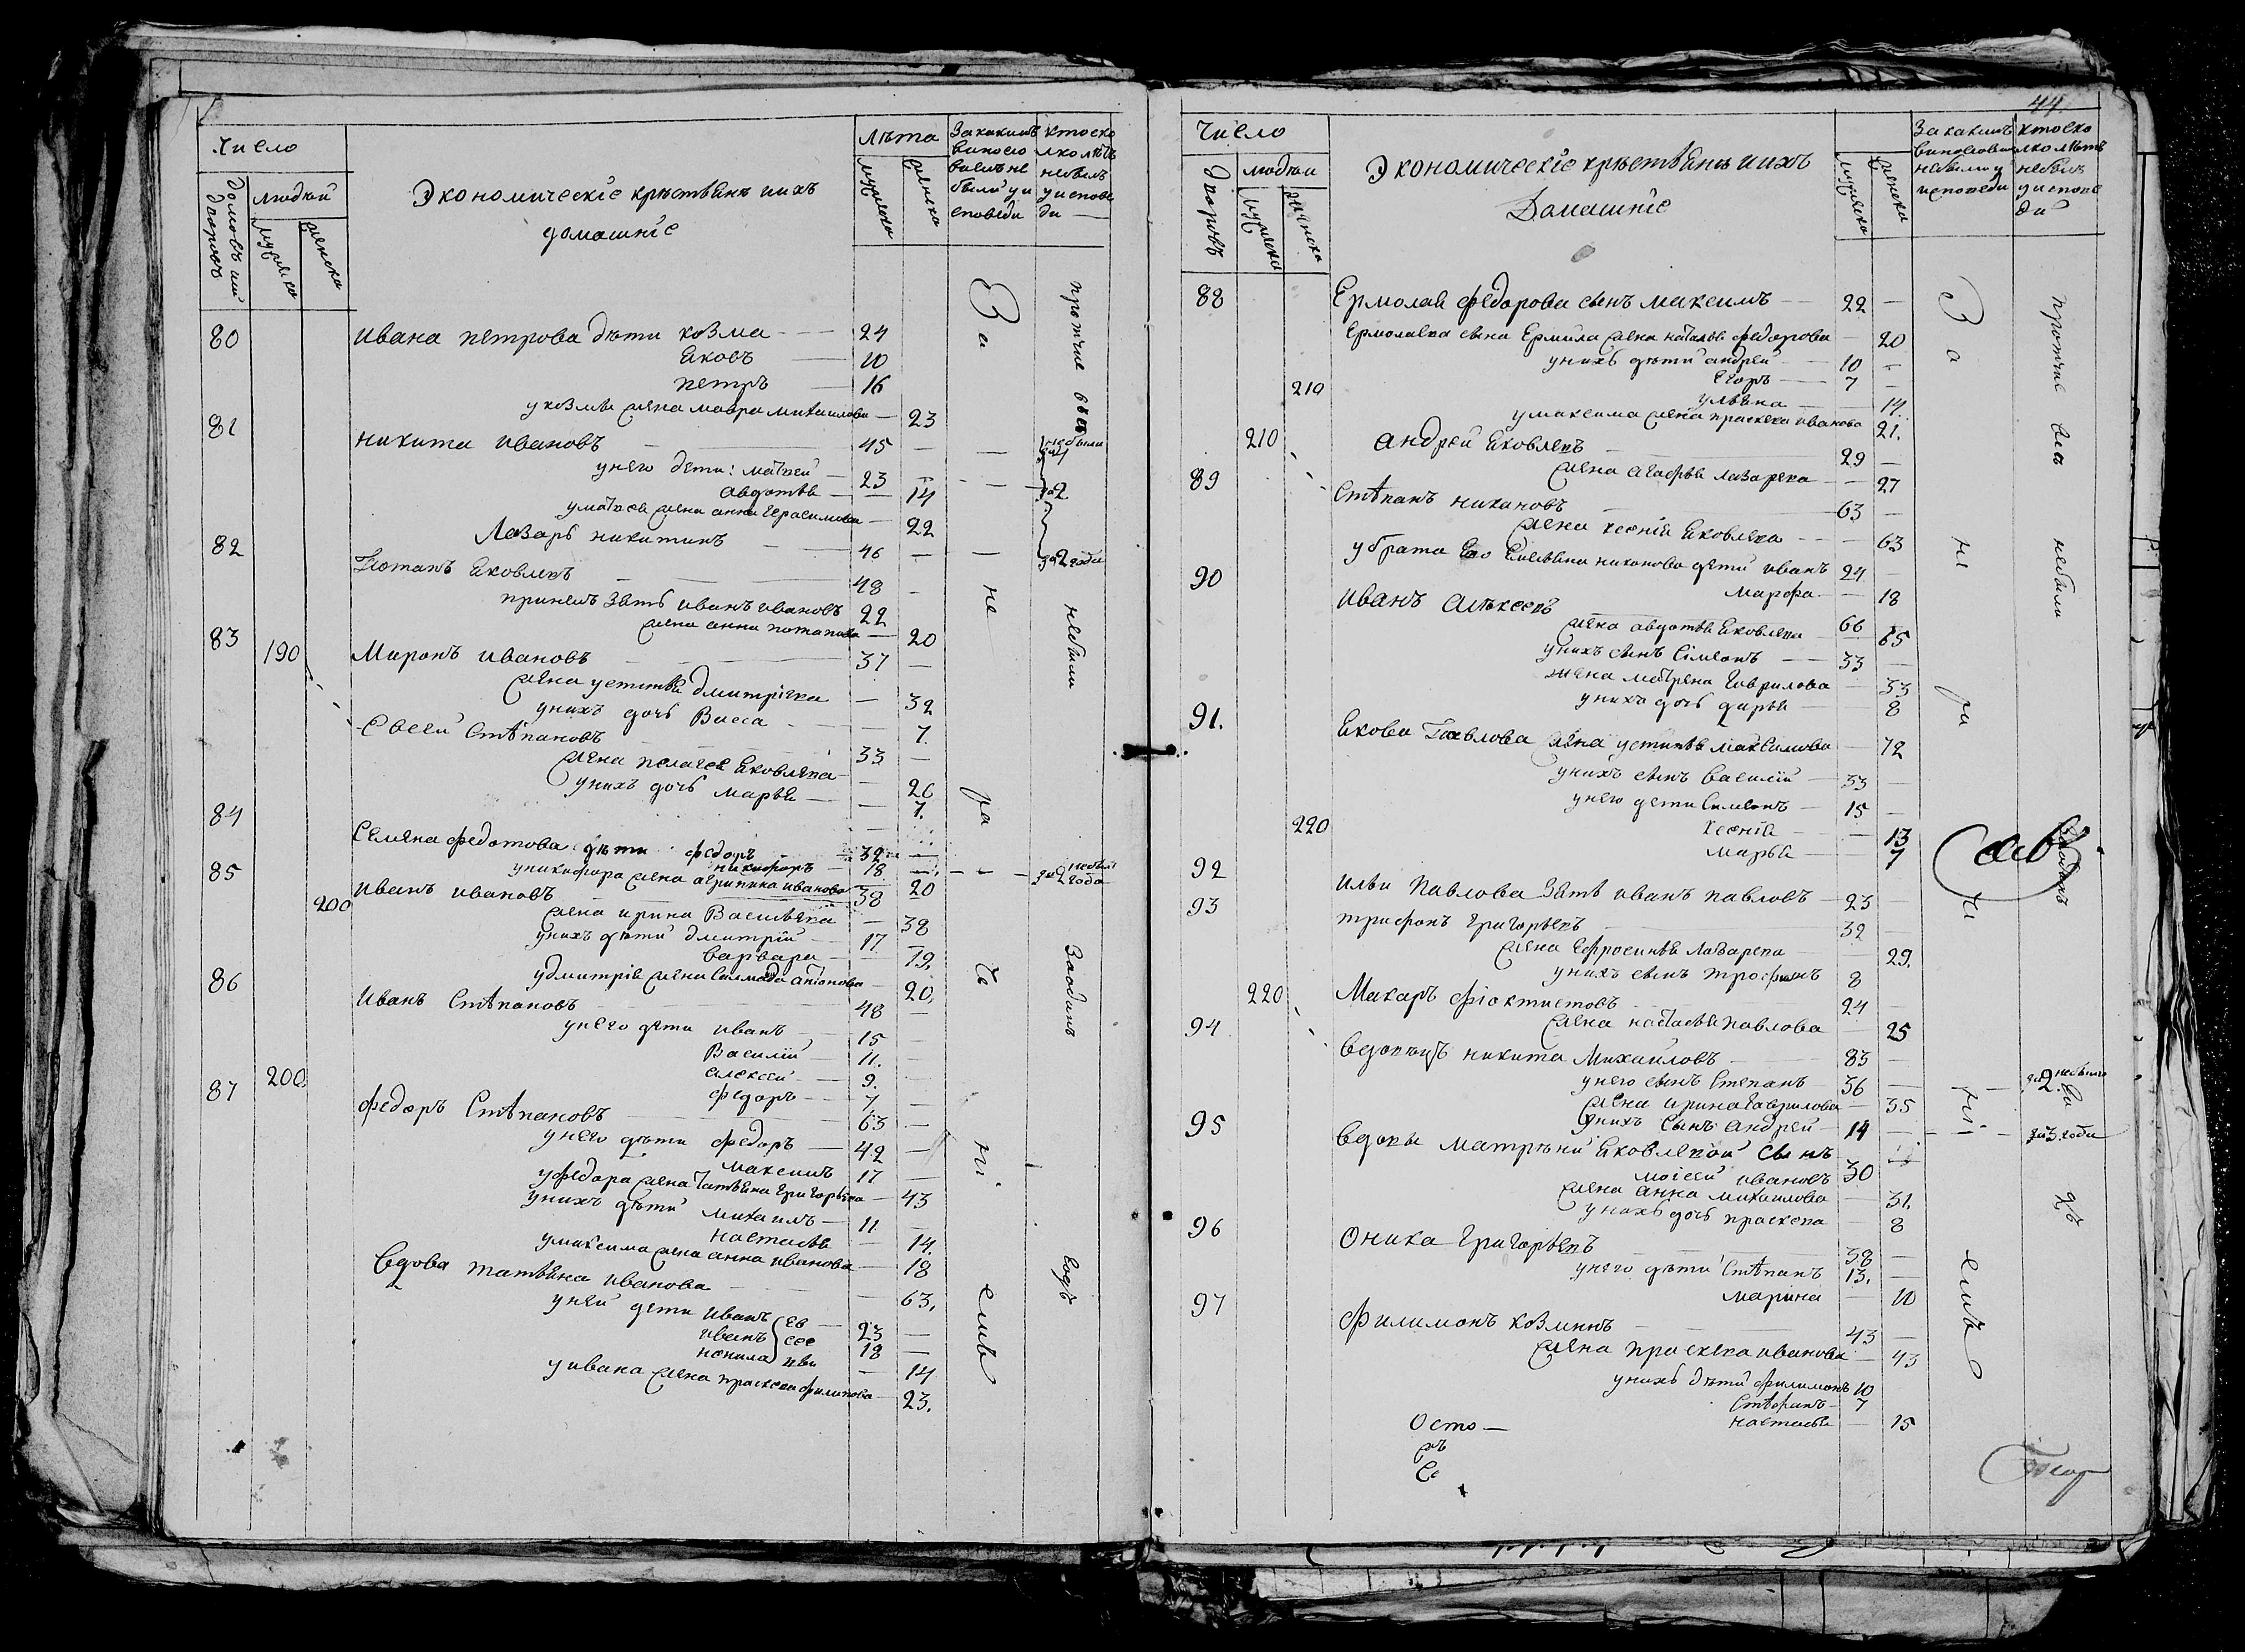 Число
Домовъ или дворовъ
людей
мужеска
женска
Экономическіе крестьянъ и ихъ
домашніе
лѣта
мужеска
женска
кто ско
лко лѣтъ
небылъ
у испове
ди
80 Ивана петрова дѣти козма 24
Яковъ 10
петръ 16
у козмы жена мавра михаилова 23
81 никита ивановъ 45
у него дети: матвей 23
авдотья 14
у матвея жена анна Герасимова 22
Лазарь никитинъ 46
82 Потапъ Яковлевъ 48
принелъ зять иванъ ивановъ 22
жена анна потапова 20
83 190 Миронъ ивановъ 37
жена устинья дмитріева 32
у нихъ дочь Васса 7.
Евсей Стѣпановъ 33
жена пелагея Яковлева 26
у нихъ дочь марья 7.
84 Семена федотова дѣти федоръ 32
никифоръ 18
у никифора жена агрипина иванова 20
85 иванъ ивановъ 38
200 жена ирина Васильева 38
у нихъ дѣти дмитрій 17
варвара 19.
у дмитрія жена антонова 20.
86 Иванъ Стѣпановъ 48
у него дети иванъ 15
Василій 11.
алексей 9.
федоръ 7
87 200 федоръ Стѣпановъ 63
у него дѣти федоръ 42
максимъ 17
у федора жена татьяна григорьева 43
у нихъ дѣти михаилъ 11
настасья 14.
у максима жена анна иванова 18
Вдова татьяна иванова 63.
у ней дети иванъ 23
иванъ 18
ненила 14
у ивана жена прасковья филипова 23.
За не
прочие все небыли
Заодинъ
годъ
небыли
за 2
за 2 года
небылъ
за 2 года
44.
Число
дворовъ
людей
мужеска
женска
Экономическіе крестьянъ и ихъ
Домашніе
мужеска
женска
За какимъ
небыли у
исповеди
кто ско
лко лѣтъ
небылъ
у испове
ди
88 Ермолая федорова сынъ максимъ 22
Ермолаева сына Ермила жена наталья федорова 20
у нихъ дѣти андрей 10
210 Егоръ 7
ульяна 14.
у максима жена прасковья иванова 21.
210 андрей Яковлевъ 29
жена агафья лазарева 27
89 Стѣпанъ никановъ 63
жена ксенія Яковлева 63
у брата его Емельяна никанова дети иванъ 24
марфа 18
90 Иванъ алѣксеевъ 66
жена авдотья Яковлева 65
у нихъ сынъ Сімеонъ 33
жена матрена гаврилова 33
у нихъ дочь дарья 8
91. Якова Павлова жена устинья максимова 72
у нихъ сынъ василій 33
у него дети Симеонъ 15
220 ксенія 13
марья 7
92 ильи Павлова зять иванъ павловъ 23
93 трифонъ григорьевъ 32
жена Ефросинья лазарева 29.
у нихъ сынъ трофимъ 8
220 Макаръ фіоктистовъ 24
жена настасья павлова 25
94 вдовецъ никита Михайловъ 83
у него сынъ Степанъ 36
жена ирина гаврилова 35
у нихъ сынъ андрей 14
95 вдовы матрены Яковлевой сынъ
моісей ивановъ 30
жена анна михаилова 31.
у нихъ дочь прасковья 8
96 Оника григорьевъ 38
у него дѣти Стѣпанъ 13.
марина 10
97 Филимонъ козминъ 43
жена прасковья иванова 43
у нихъ дѣти филимонъ 10
Стѣфанъ 7
настасья 15
За не
прочие все небыли
за 3 года